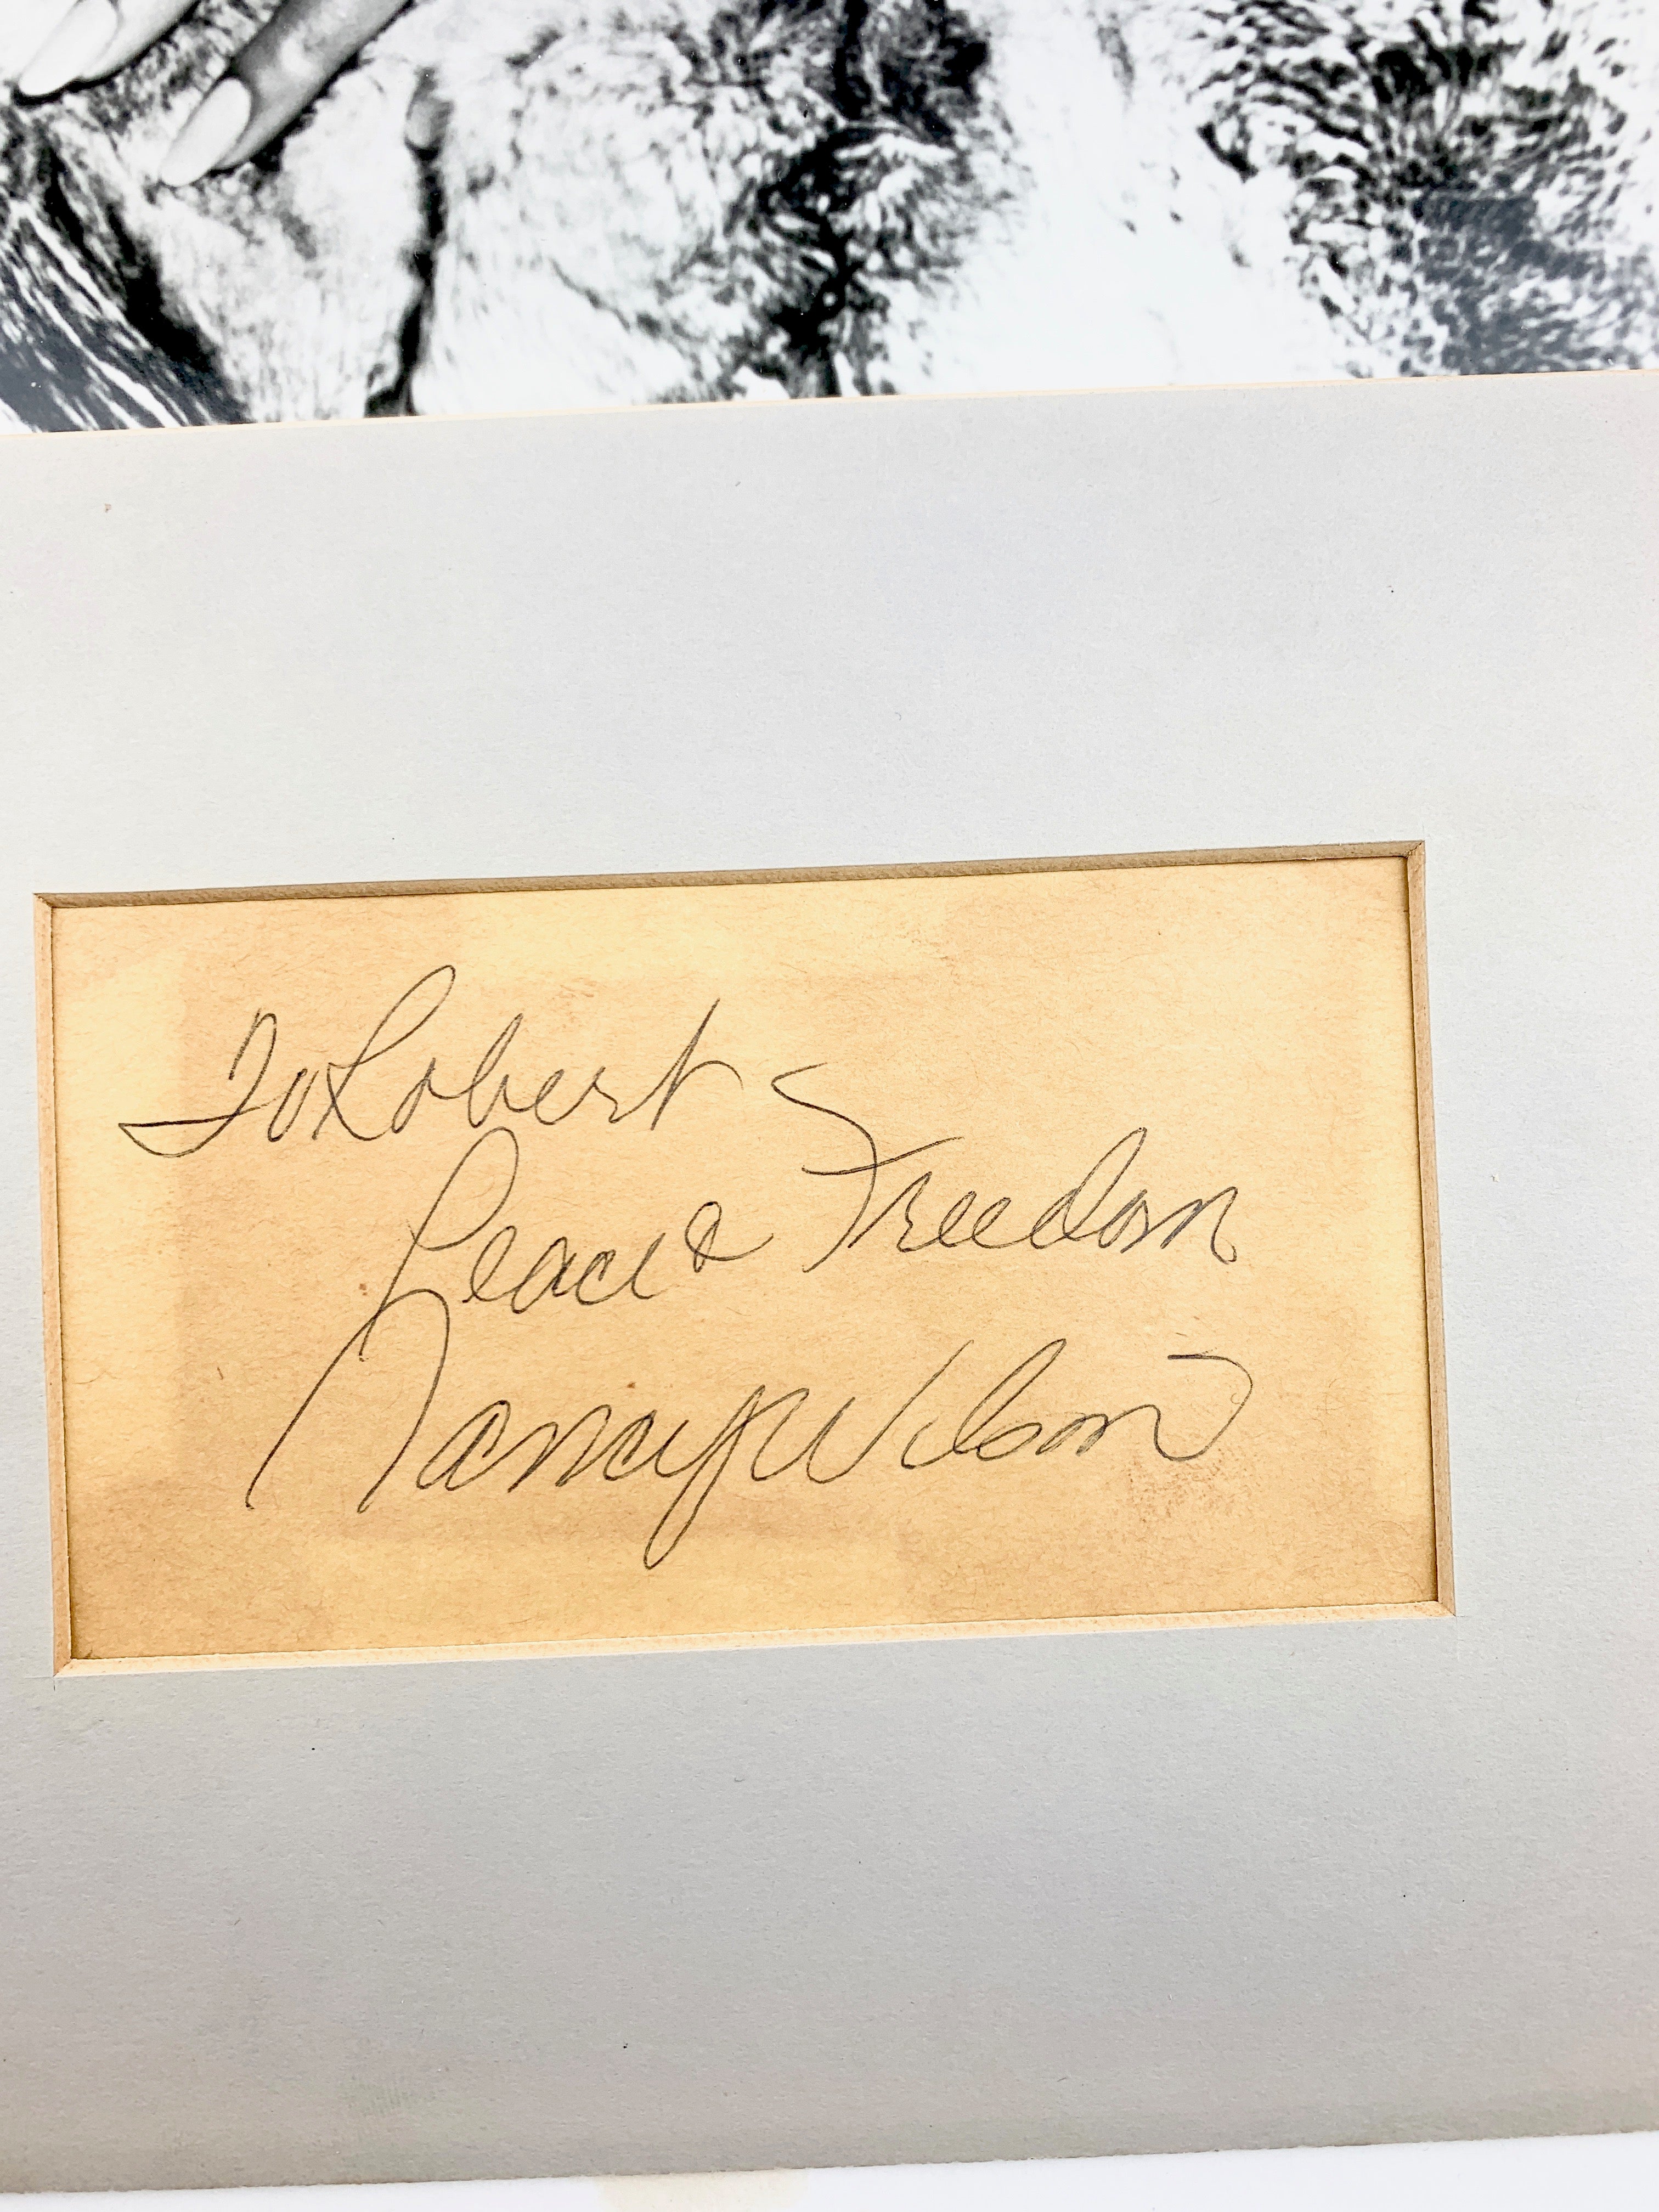 To Robert -
Peace & Freedom
Nancy Wilson